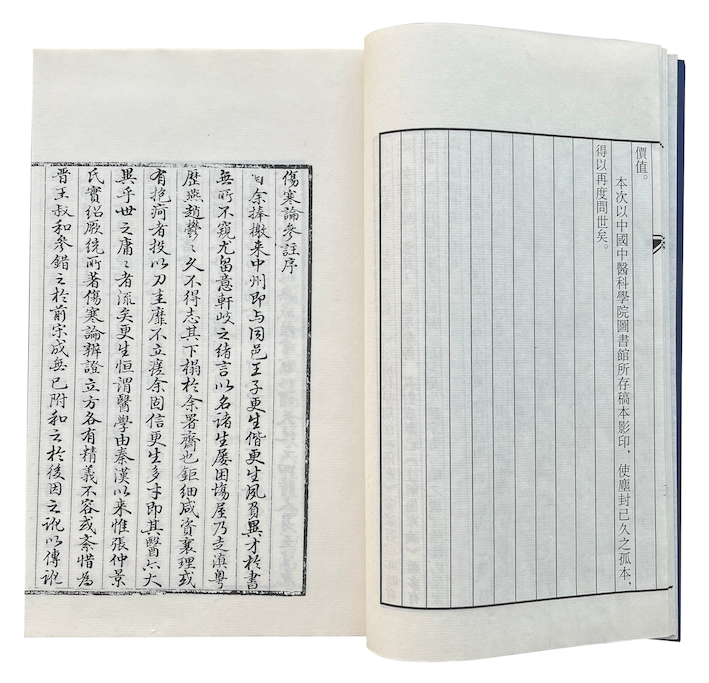 價值。
本次以中國中醫科學院圖書館所存稿本影印，使塵封已久之孤本，
得以再度問世矣。
傷寒論參註序
自余捧檄來中州即与同邑王子更生偕更生夙負異才於書
無所不窺尤留意軒岐之緒言以名諸生屢困塲屋乃走滇粤
歷燕趙鬱〻久不得志其下榻於余署齋也鉅細咸資襄理或
有抱疴者投以刀圭靡不立瘥余固信更生多才即其醫亦大
異乎世之庸〻者流矣更生恒謂醫學由秦漢以來惟張仲景
氏實紹厥統所著傷寒論辨證立方各有精義不容或紊惜為
晋王叔和參錯之於前宋成無已附和之於後因之訛以傳訛